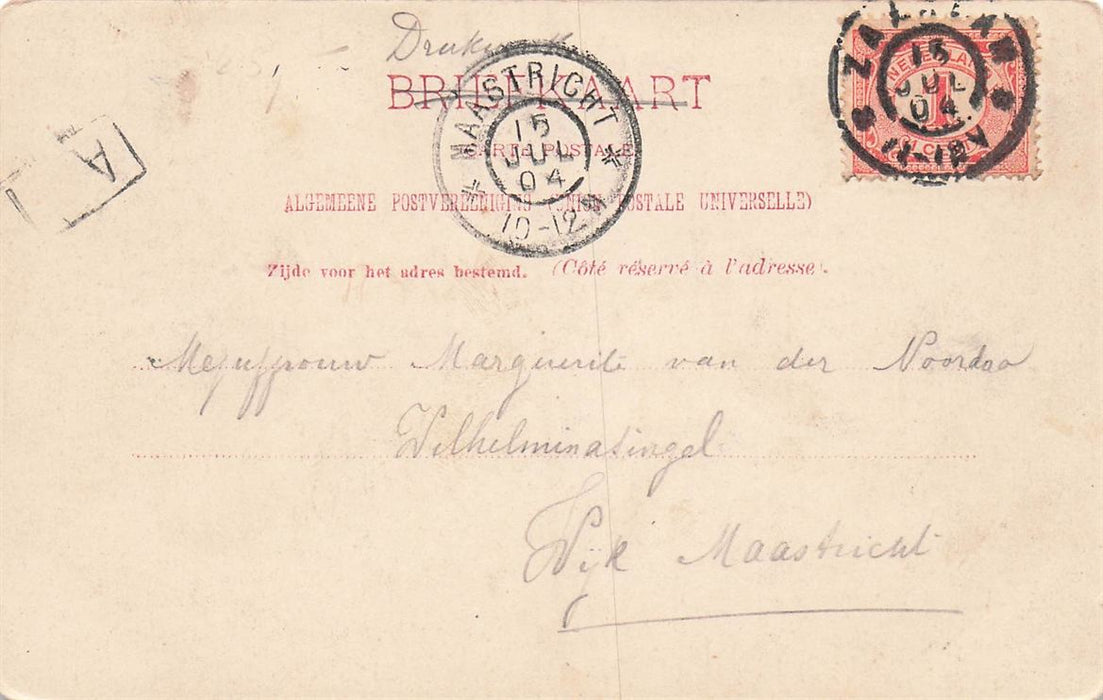 BRIEFKAART
CARTE POSTALE
ALGEMEENE POSTVEREENIGING (UNION POSTALE UNIVERSELLE)
Zijde voor het adres bestemd. (Côté réservé à l'adresse).
MAASTRICHT
15
JUL
04
10-12V
15
JUL
04
11-12V
NEDERLAND
1
CENT
A
Mejuffrouw Marguerite van der
Wilhelminasingel
Wijk Maastricht